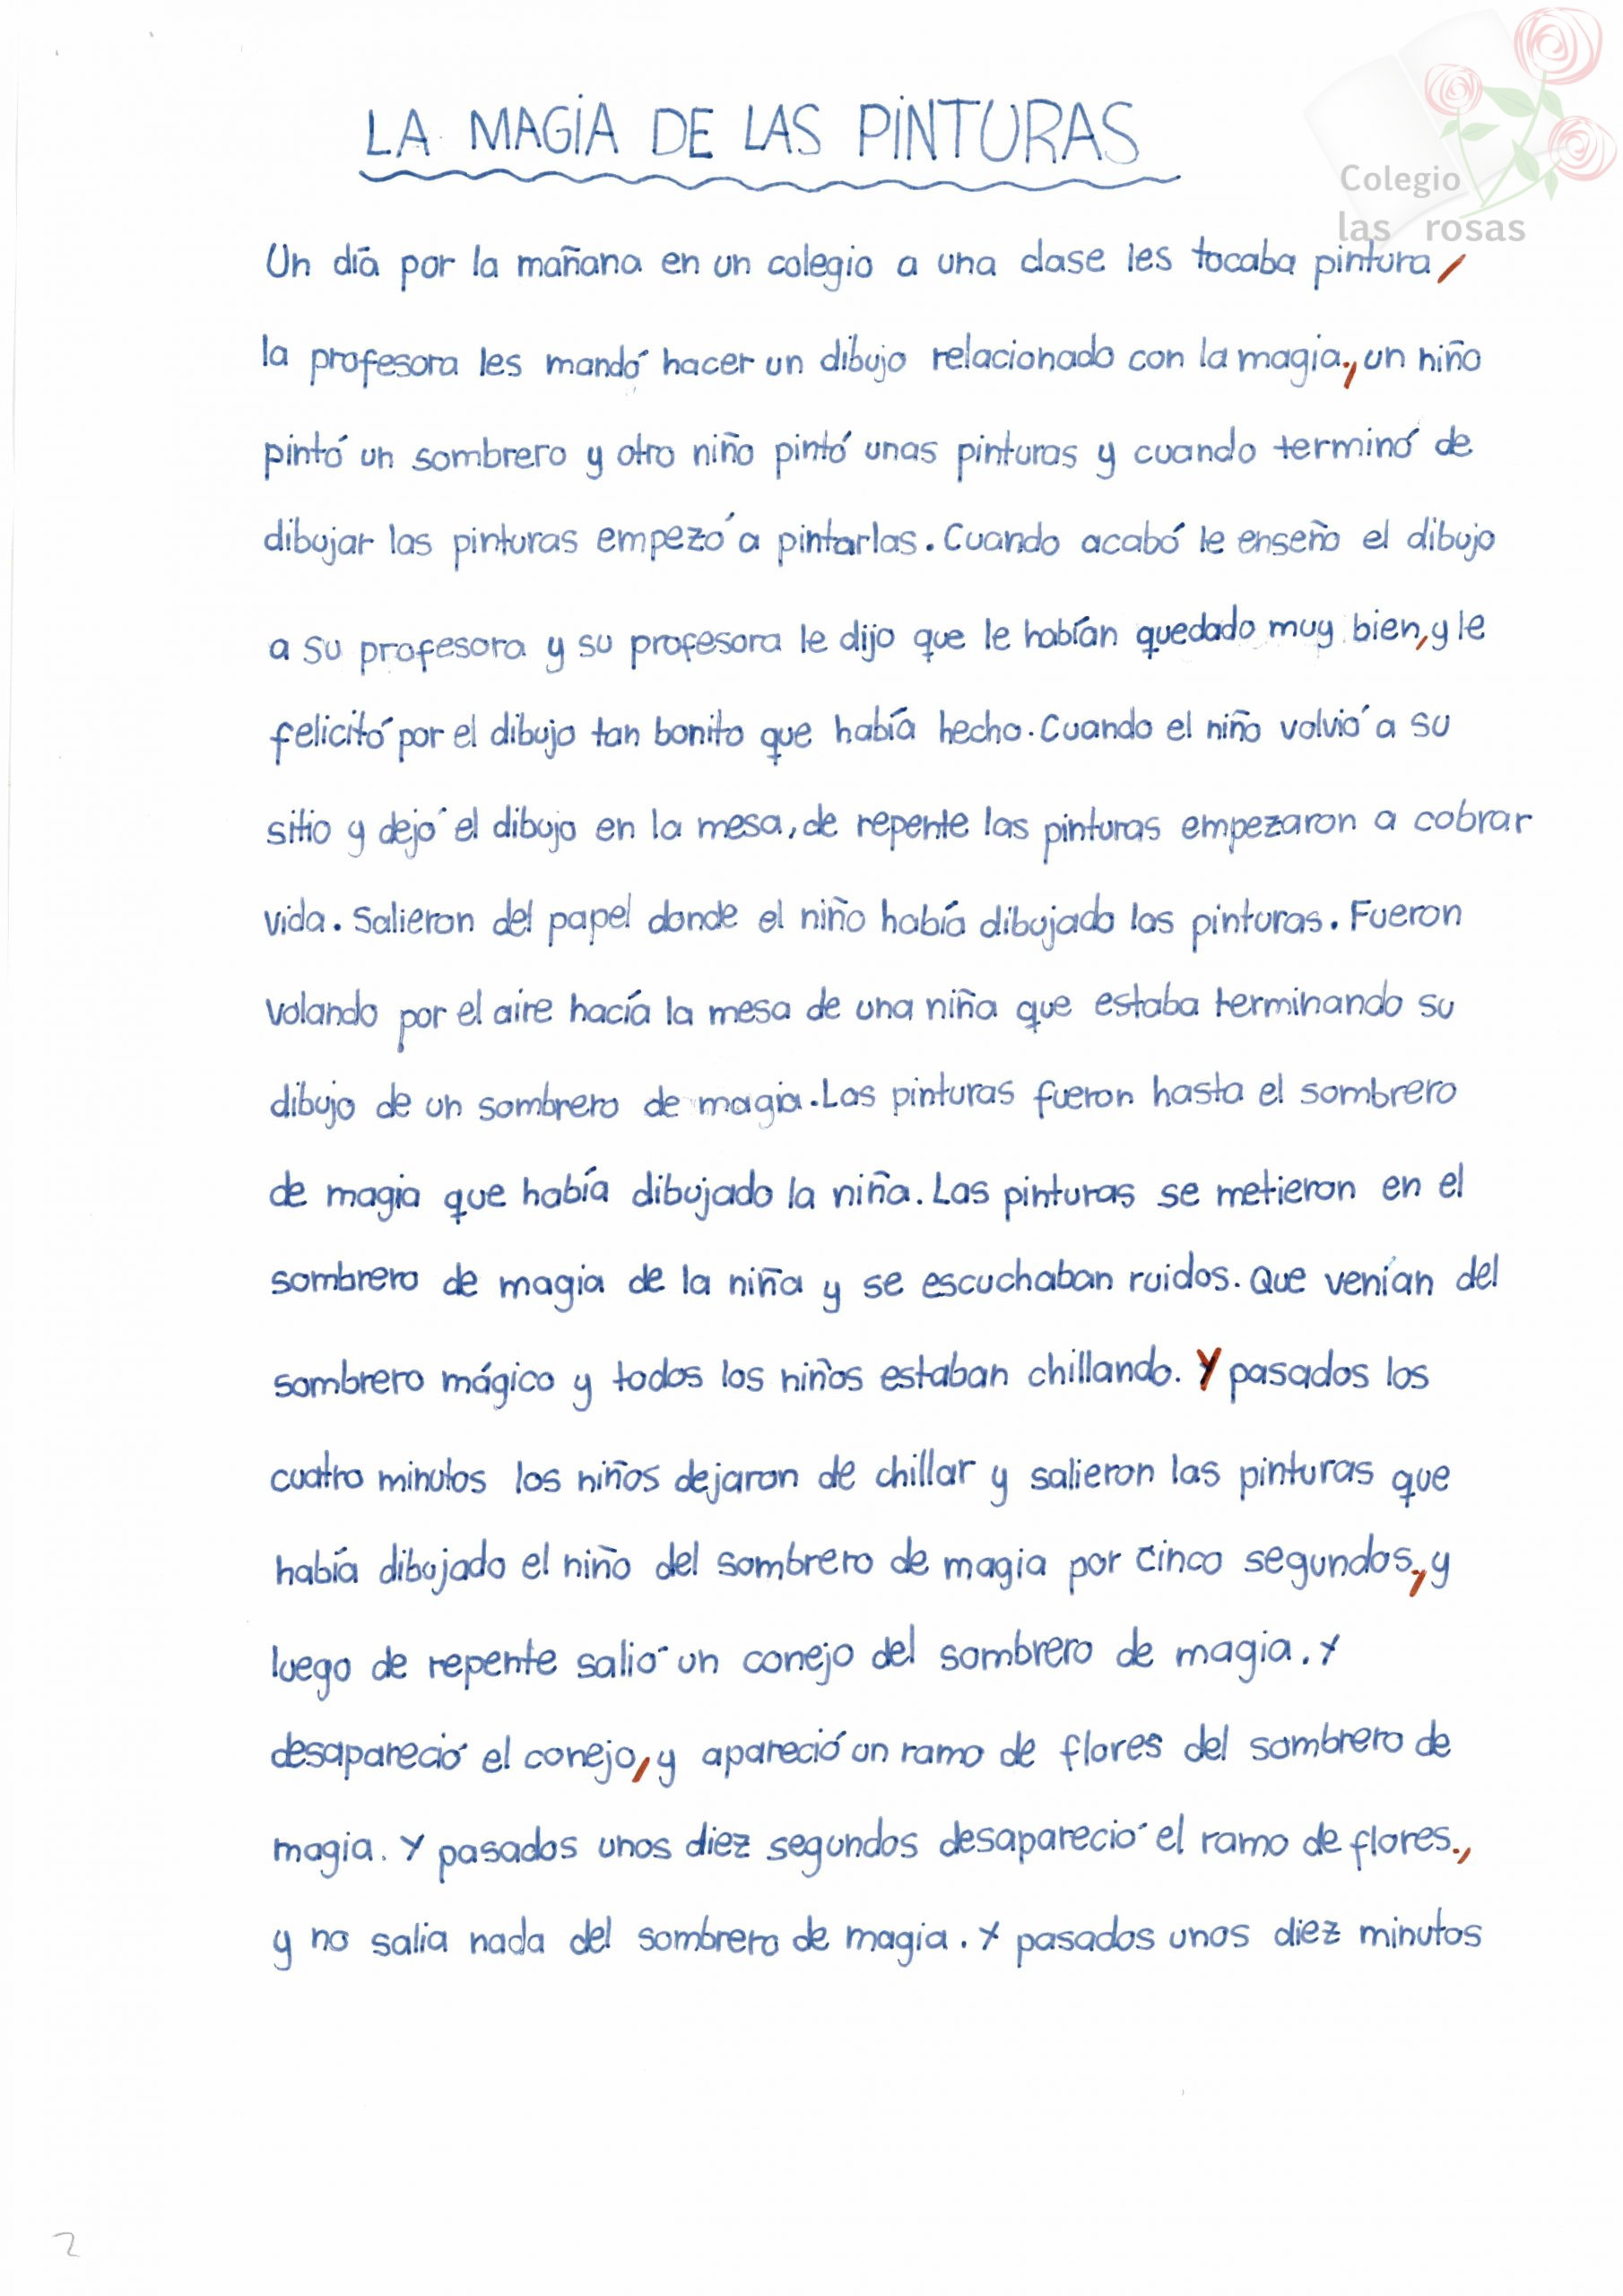 Colegio
las rosas
LA MAGIA DE LAS PINTURAS
Un día por la mañana en un colegio a una clase les tocaba pintura,
la profesora les mandó hacer un dibujo relacionado con la magia., un niño
pintó un sombrero y otro niño pintó unas pinturas y cuando terminó de
dibujar las pinturas empezó a pintarlas. Cuando acabó le enseño el dibujo
a su profesora y su profesora le dijo que le habían quedado muy bien, y le
felicitó por el dibujo tan bonito que había hecho. Cuando el niño volvió a su
sitio y dejó el dibujo en la mesa, de repente las pinturas empezaron a cobrar
vida. Salieron del papel donde el niño había dibujado las pinturas. Fueron
volando por el aire hacía la mesa de una niña que estaba terminando su
dibujo de un sombrero de magia. Las pinturas fueron hasta el sombrero
de magia que había dibujado la niña. Las pinturas se metieron en el
sombrero de magia de la niña y se escuchaban ruidos. Que venían del
sombrero mágico y todos los niños estaban chillando. Y pasados los
cuatro minutos los niños dejaron de chillar y salieron las pinturas que
había dibujado el niño del sombrero de magia por cinco segundos, y
luego de repente salió un conejo del sombrero de magia. Y
desapareció el conejo, y apareció un ramo de flores del sombrero de
magia. Y pasados unos diez segundos desapareció el ramo de flores.,
y no salia nada del sombrero de magia. Y pasados unos diez minutos
2